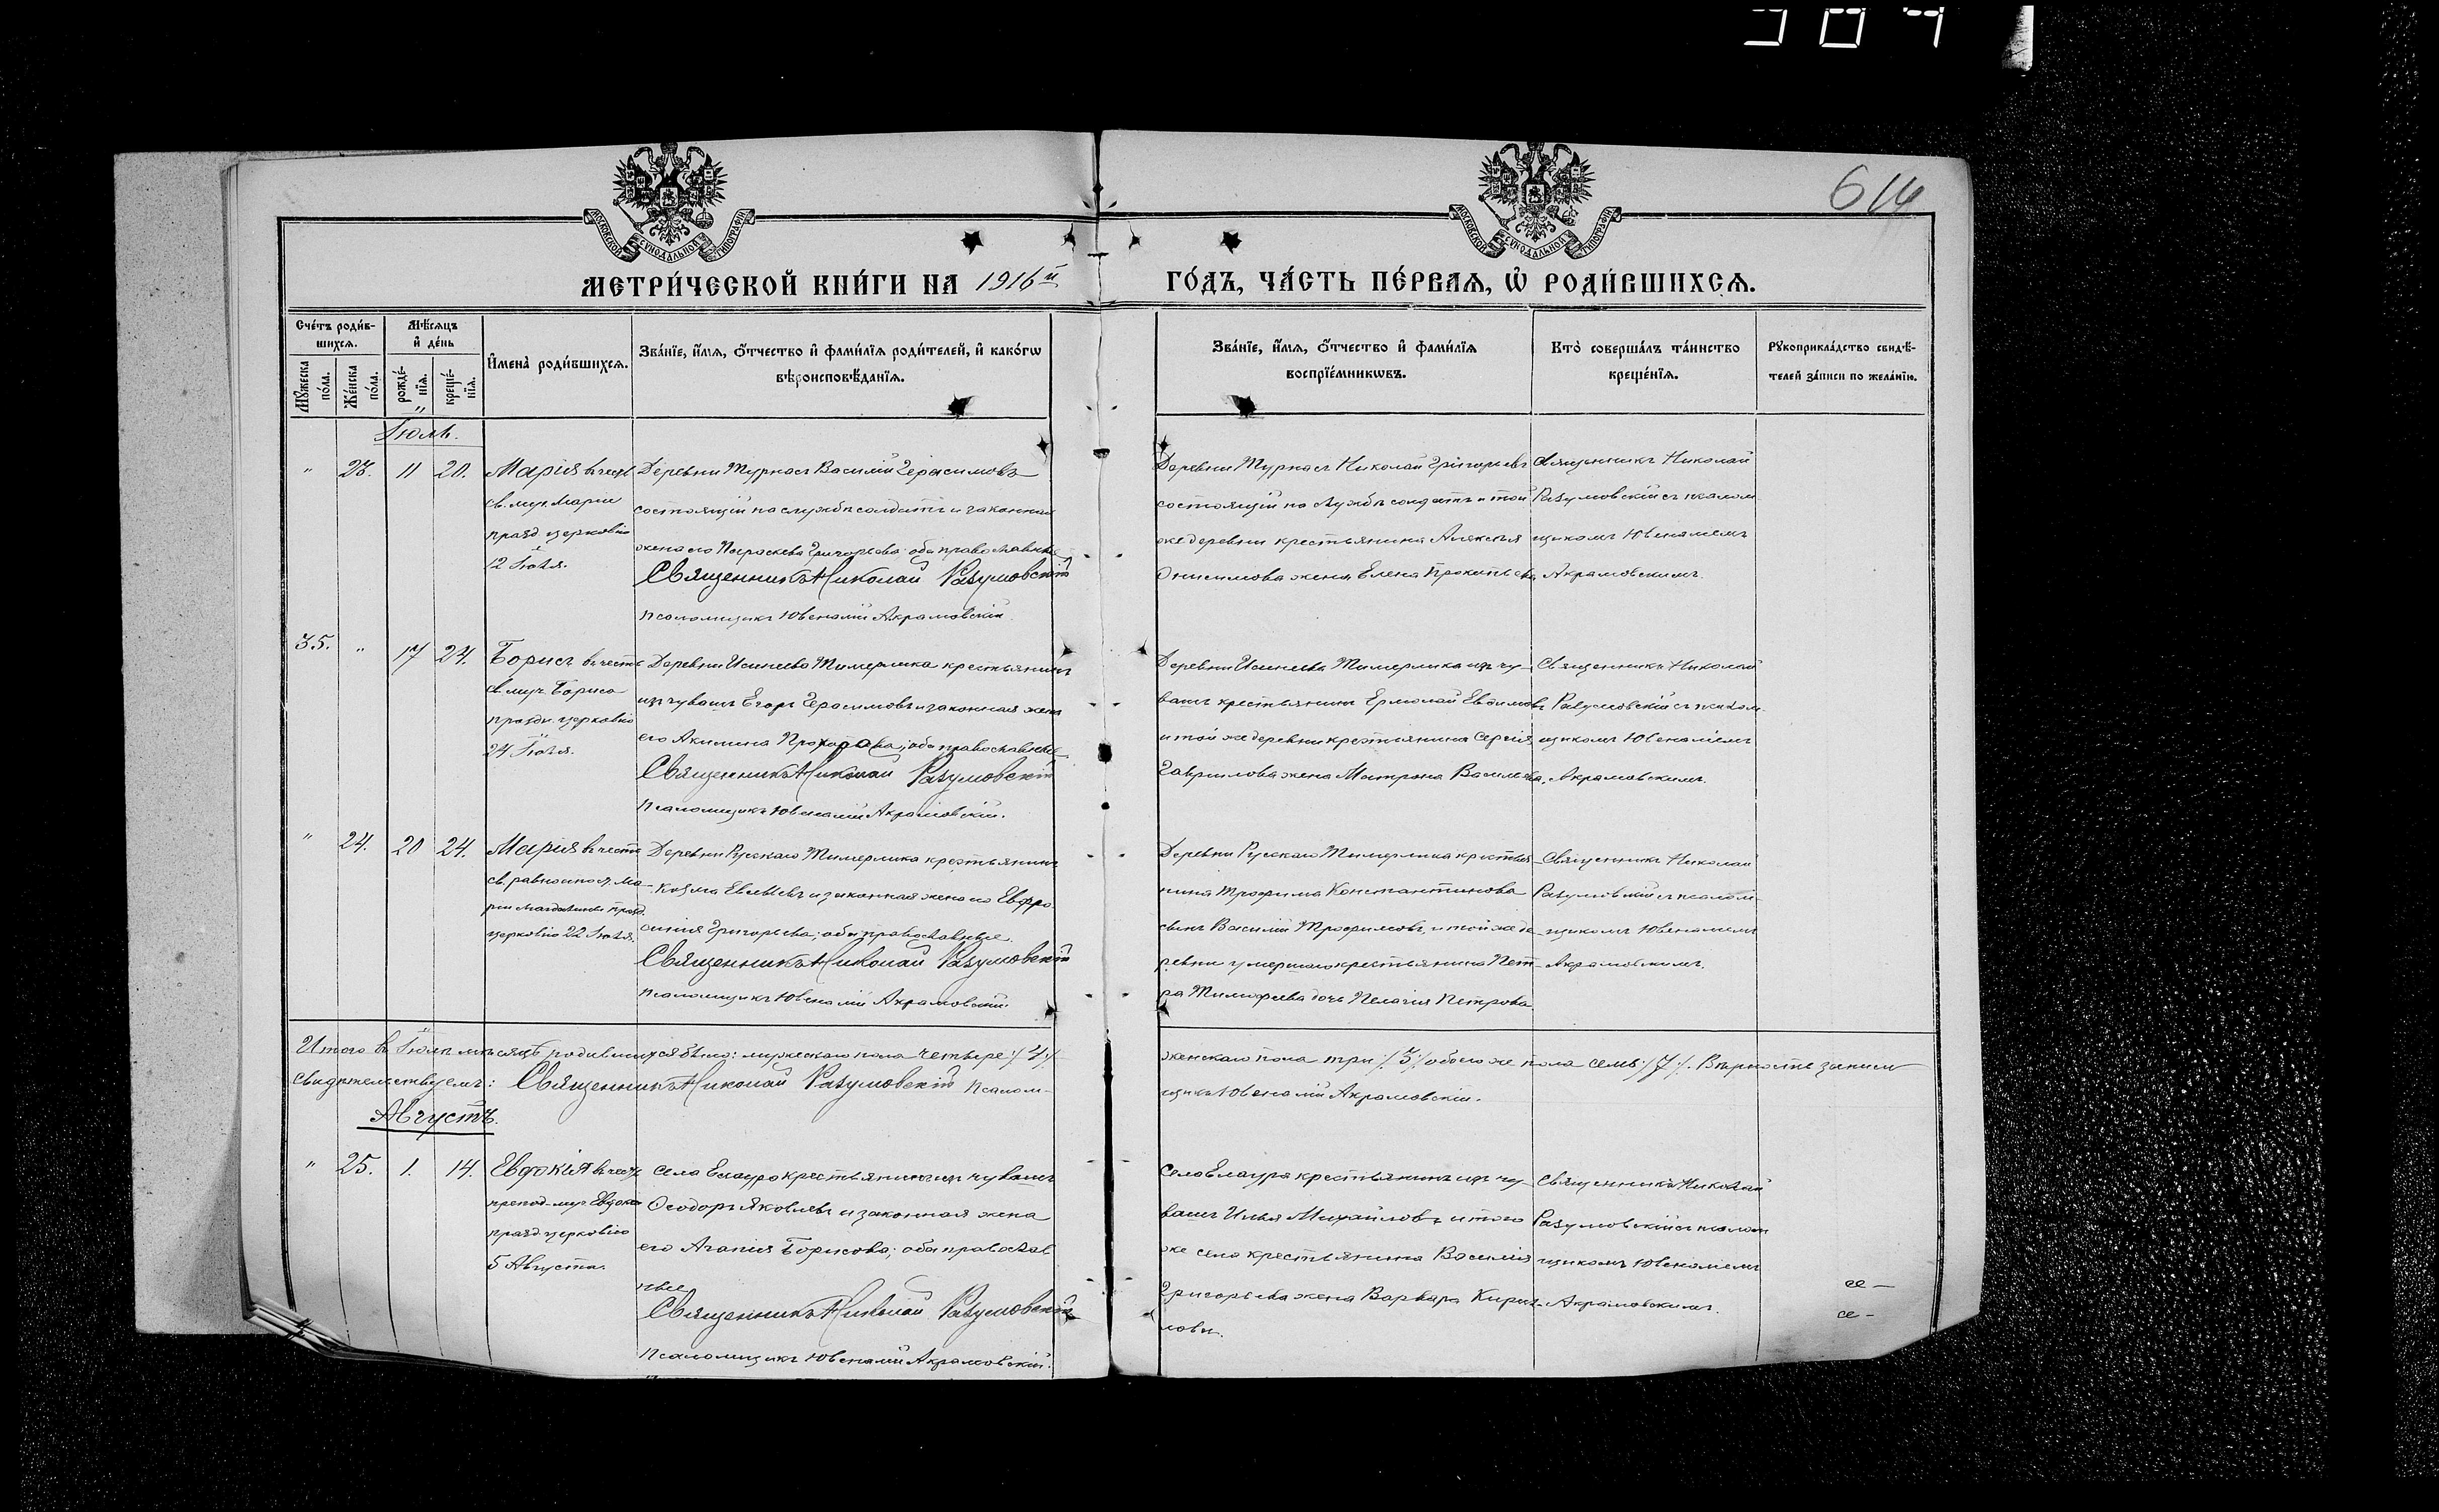 614
МОСКОВСКОЙ СѴНОДАЛЬНОЙ ТИПОГРАФІИ
МОСКОВСКОЙ СѴНОДАЛЬНОЙ ТИПОГРАФІИ
МЕТРИ́ЧЕСКОЙ КНИ́ГИ НА 1916й
ГО́ДЪ, ЧА́СТЬ ПЕ́РВАѦ, Ѡ҆ РОДИ́ВШИХСѦ.
Сче́тъ роди́в-
шихсѧ.
Мꙋ́жеска по́ла.
Же́нска по́ла.
Мѣ́сѧцъ
и҆ де́нь
рожде́-
нїѧ.
креще́-
нїѧ.
И҆мена̀ роди́вшихсѧ.
Зва́нїе, и҆́мѧ, ѻ҆́тчество и҆ фами́лїѧ роди́телей, и҆ како́гѡ
вѣроисповѣ́данїѧ.
Зва́нїе, и҆́мѧ, ѻ҆́тчество и҆ фами́лїѧ
воспрїе́мникѡвъ.
Кто̀ соверша́лъ та́инство
креще́нїѧ.
Рꙋкоприкла́дство свидѣ́-
телей за́писи по жела́нїю.
Іюль.
" 23. 11 20.
Марія въ честь
св. муч. Маріи
празд. церковію
12 Іюля.
Деревни Турнасъ Василій Герасимовъ
состоящій на службѣ солдатъ и законная
жена его Параскева Григорьева; оба православные
Священникъ Николай Разумовскій
Псаломщикъ Ювеналій Акрамовскій
Деревни Турнасъ Николай Григорьевъ
состоящій на службѣ солдатъ и той
же деревни крестьянина Алексѣя
Онисимова жена Елена Прокопьева
Священникъ Николай
Разумовскій съ псалом
щикомъ Ювеналіемъ
Акрамовскимъ.
35. " 17 24.
Борисъ въ честь
св. муч. Бориса
праздн. церковію
24 Іюля.
Деревни Исинеево Тимерлика крестьянинъ
изъ чувашъ Егоръ Герасимовъ и законная жена
его Акилина Прохорова; оба православные
Священникъ Николай Разумовскій
Псаломщикъ Ювеналій Акрамовскій.
Деревни Исинеева Тимерлика изъ чу-
вашъ крестьянинъ Ермолай Евдокимовъ
и той же деревни крестьянина Сергія
Гаврилова жена Матрона Васильева.
Священникъ Николай
Разумовскій съ псалом-
щикомъ Ювеналіемъ
Акрамовскимъ.
" 24. 20 24.
Марія въ честь
св. равноапост. Ма-
ріи Магдалины празд.
церковію 22 Іюля.
Деревни Русскаго Тимерлика крестьянинъ
Козма и законная жена его Евфро
синія Григорьева; оба православные.
Священникъ Николай Разумовскій
Псаломщикъ Ювеналій Акрамовскій.
Деревни Русскаго Тимерлика крестья-
нина Трофима Константинова
сынъ Василій Трофимовъ, и той же де-
ревни умершаго крестьянина Пет-
ра Тимофеева дочь Пелагія Петрова
Священникъ Николай
Разумовскій съ псалом-
щикомъ Ювеналіемъ
Акрамовскимъ.
Итого въ Іюлѣ мѣсяцѣ родившихся было: мужескаго пола четыре /4/
женскаго пола три /3/ обоего же пола семь /7/. Вѣрность записи
свидѣтельствуемъ: Священникъ Николай Разумовскій Псалом-
щикъ Ювеналій Акрамовскій.
Августъ.
" 25. 1. 14.
Евдокія въ честь
препод. муч. Евдокіи
празд. церковію
5 Августа.
Села Елаура крестьянинъ изъ чувашъ
Ѳеодоръ Яковлевъ и законная жена
его Агапія Борисова; оба православ
ные
Священникъ Николай Разумовскій
Псаломщикъ Ювеналій Акрамовскій.
Села Елаура крестьянинъ изъ чу-
вашъ Илья Михайловъ и того
же села крестьянина Василія
Григорьева жена Варвара Кирил-
лова.
Священникъ Николай
Разумовскій съ псалом
щикомъ Ювеналіемъ
Акрамовскимъ.